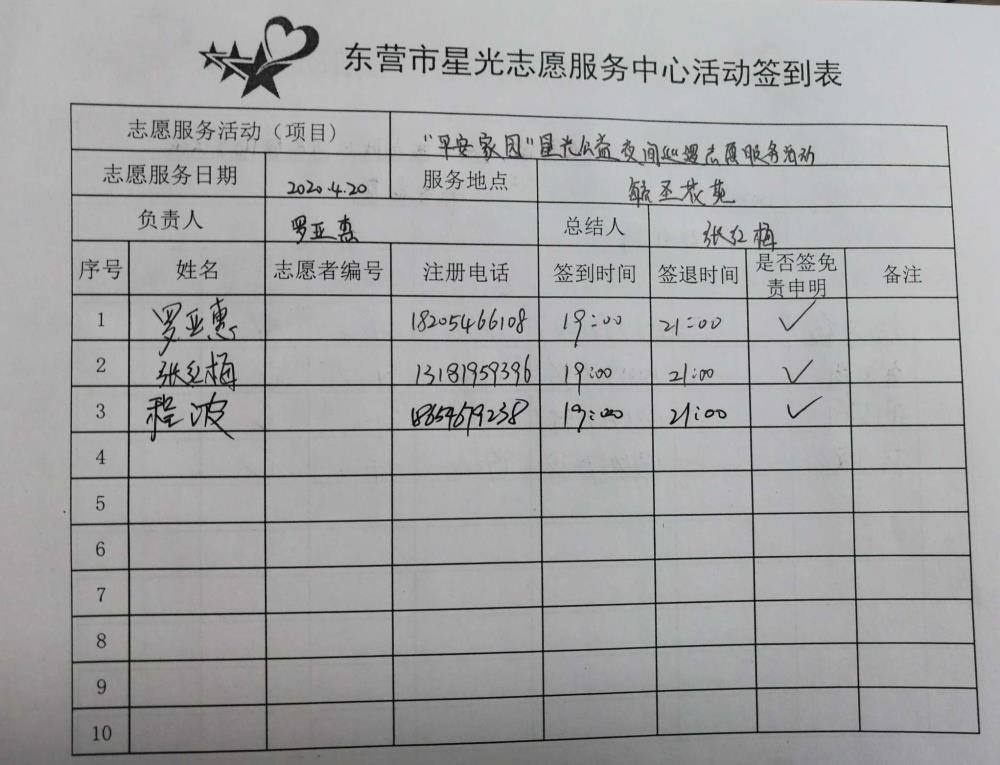 东营市星光志愿服务中心活动签到表
志愿服务活动（项目） "平安家园"星光公益夜间巡逻志愿服务活动
志愿服务日期 2020.4.20 服务地点 毓圣茂苑
负责人 罗亚惠 总结人 张红梅
序号 姓名 志愿者编号 注册电话 签到时间 签退时间 是否签免责申明 备注
1 罗亚惠 18205466108 19:00 21:00 ✓
2 张红梅 13181959396 19:00 21:00 ✓
3 程波 19:00 21:00 ✓
4
5
6
7
8
9
10